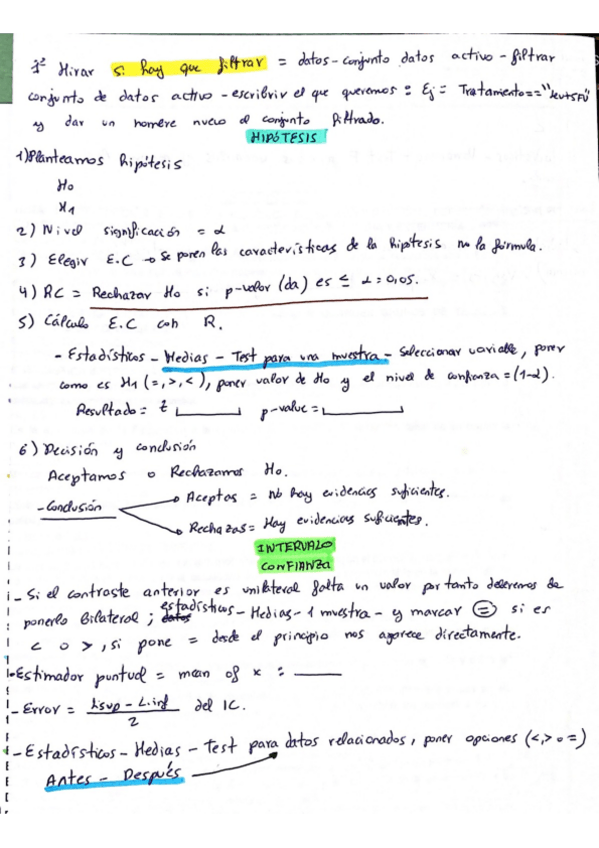 1º Mirar si hay que filtrar = datos-conjunto datos activo-filtrar
conjunto de datos activo-escribrir el que queremos: Ej= Tratamiento=="
y dar un nombre nuevo al conjunto filtrado.
HIPÓTESIS
1) Planteamos hipótesis
H0
H1
2) Nivel significación = α
3) Elegir E.C → Se ponen las características de la hipótesis no la fórmula.
4) RC = Rechazar H0 si p-valor (da) es ≤ α=0,05.
5) Cálculo E.C con R.
- Estadísticos - Medias - Test para una muestra - Seleccionar variable, poner
como es H1 (=,>,<), poner valor de H0 y el nivel de confianza = (1-α).
Resultado = t p-value=
6) Decisión y conclusión
Aceptamos o Rechazamos H0.
-Conclusión
Aceptas = No hay evidencias suficientes.
Rechazas= Hay evidencias suficientes.
INTERVALO
CONFIANZA
- Si el contraste anterior es unilateral falta un valor por tanto deberemos de
ponerlo Bilateral; estadísticos-Medias-1 muestra- y marcar = si es
< o >, si pone = desde el principio nos aparece directamente.
-Estimador puntual = mean of x =
-Error = Lsup - L.inf / 2 del IC.
-Estadísticos-Medias-Test para datos relacionados, poner opciones (<,> o =)
Antes - Después